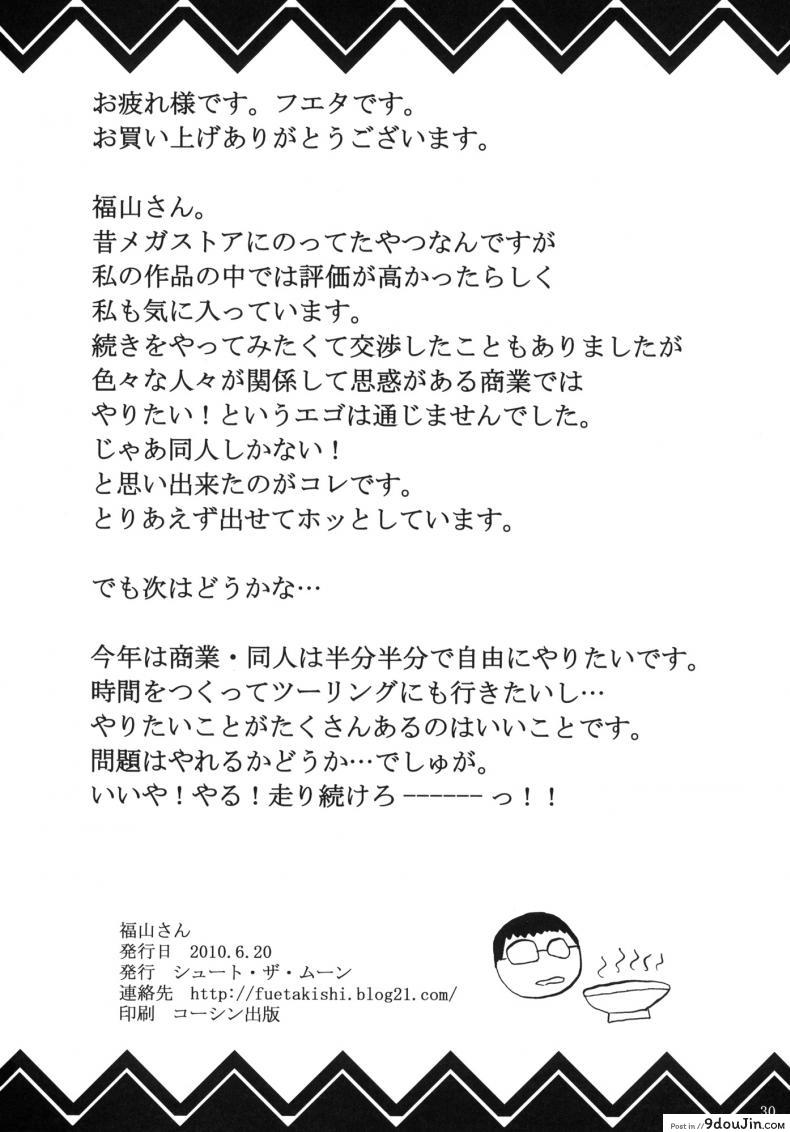 お疲れ様です。フエタです。
お買い上げありがとうございます。
福山さん。
昔メガストアにのってたやつなんですが
私の作品の中では評価が高かったらしく
私も気に入っています。
続きをやってみたくて交渉したこともありましたが
色々な人々が関係して思惑がある商業では
やりたい！というエゴは通じませんでした。
じゃあ同人しかない！
と思い出来たのがコレです。
とりあえず出せてホッとしています。
でも次はどうかな…
今年は商業・同人は半分半分で自由にやりたいです。
時間をつくってツーリングにも行きたいし…
やりたいことがたくさんあるのはいいことです。
問題はやれるかどうか…でしゅが。
いいや！やる！走り続けろ ------ っ！！
福山さん
発行日　2010.6.20
発行　シュート・ザ・ムーン
連絡先　http://fuetakishi.blog21.com/
印刷　コーシン出版
30
Post in // 9douJin.com